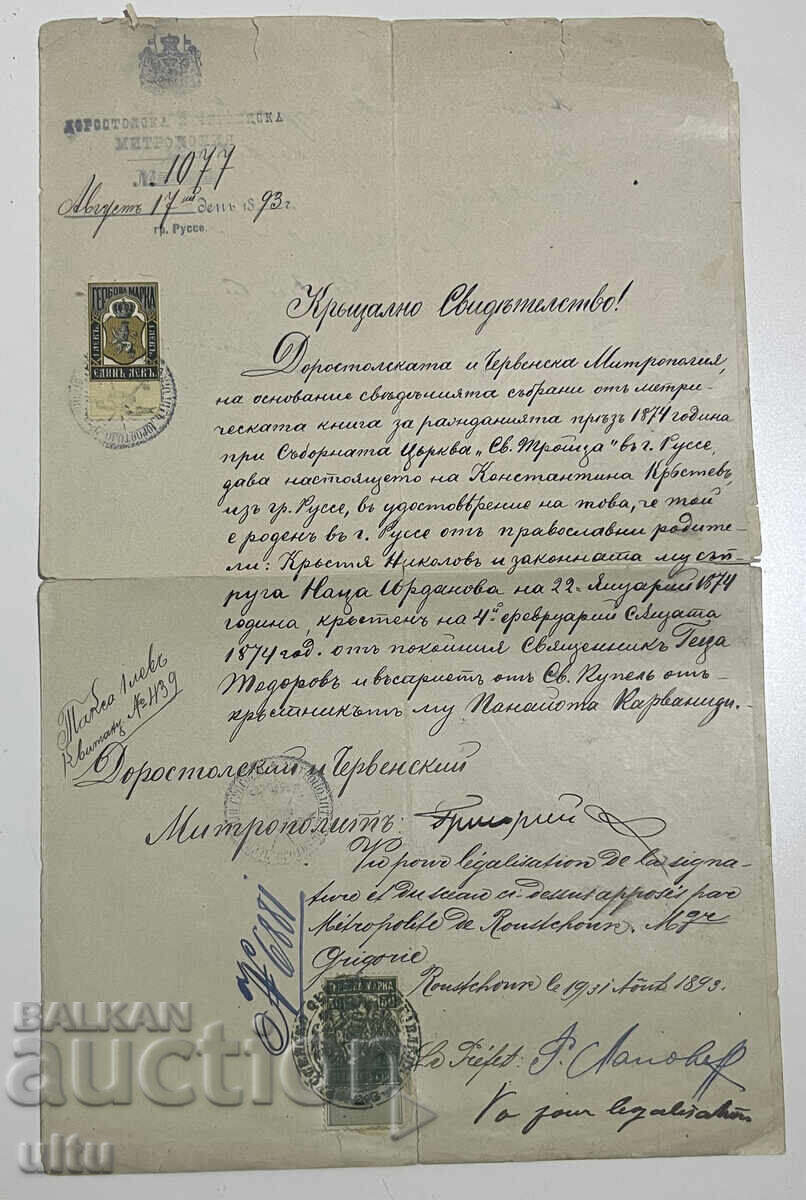 ДОРОСТОЛСКА И ЧЕРВЕНСКА
МИТРОПОЛИЯ
№ 1077
Августъ 17ий день 1893 г.
гр. Руссе.
ГЕРБОВА МАРКА
1 ЛЕВЪ
1 ЛЕВЪ
ЕДИНЪ ЛЕВЪ
Кръщално Свидѣтелство!
Доростолската и Червенска Митрополия,
на основание свѣдѣнията събрани отъ метри-
ческата книга за ражданията прѣзъ 1874 година
при Съборната Църква „Св. Троица“ въ г. Руссе,
дава настоящето на Константина Кръстевъ,
изъ гр. Руссе, въ удостовѣрение на това, че той
е роденъ въ г. Руссе отъ православни родите-
ли: Кръстя Николовъ и законната му съп-
руга Наца Иорданова на 22 Януарий 1874
година, кръстенъ на 4й февруарий сѫщата
1874 год. отъ покойния Священникъ Геца
Тодоровъ и въсприетъ отъ Св. Купель отъ
кръстникътъ му Панайота Карваниди.
Такса 1 левъ
Квитанц № 439
Доростолский и Червенский
Митрополитъ: Григорий
Vu pour légalisation de la signa-
ture et du sceau ci-dessus apposés par
Métropolite de Roustchouk, Mgr
Grigorie
Roustchouk le 19/31 Août 1893.
№ 6881
ГЕРБОВА МАРКА
50
Le Préfet:
Vu pour legalisation
BALKAN
auction
ultu